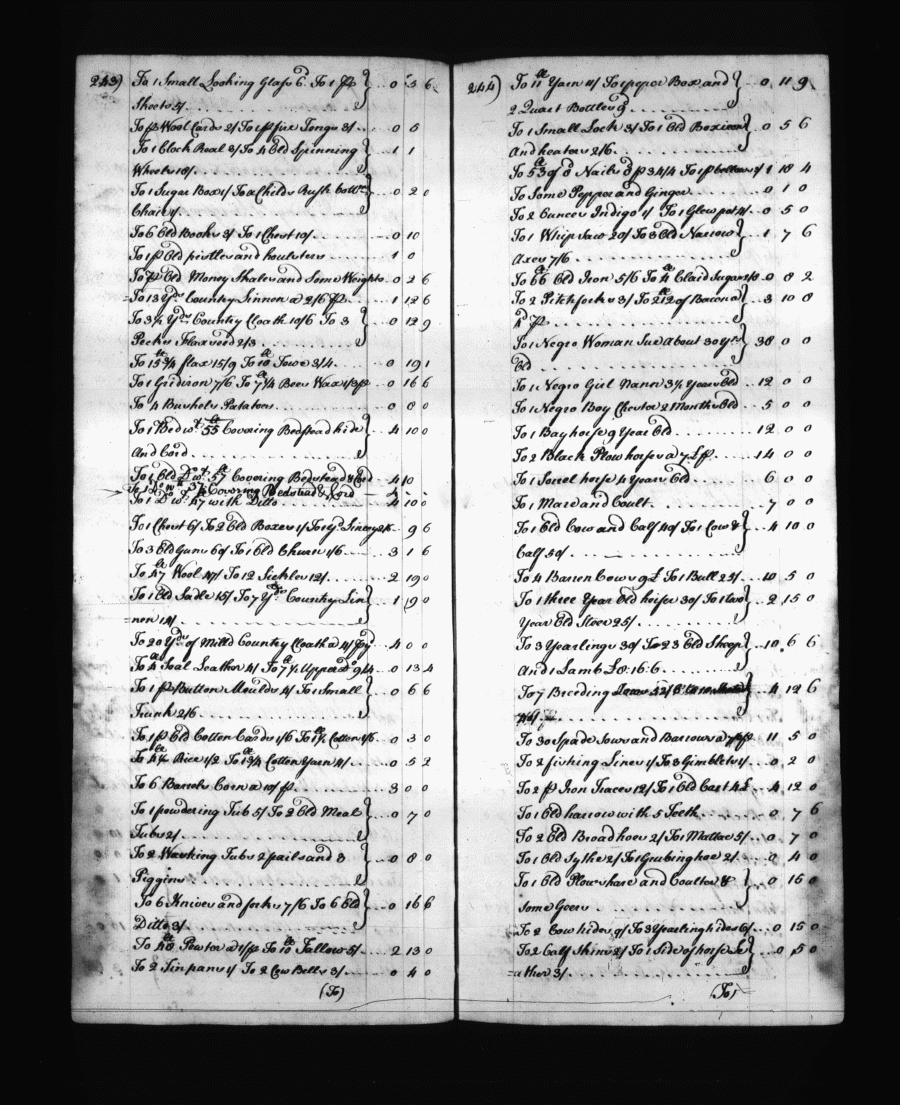 243) To 1 Small Looking Glass 6.d To 1 pr } 0 5 6
Sheets 5/
To pr Wool Cards 2/ To 1 pr fire Tongs 3/ 0 5
To 1 Clock Real 3/ To 4 Old Spinning } 1 1
Wheels 18/
To 1 Sugar Box 1/ To a Childs Rush bottm } 0 2 0
Chair 1/
To 6 Old Books 3/ To 1 Chest 10/ 0 10
To 1 pr Old pistles and houlsters 1 0
To pr Old Money Skales and Some Weights 0 2 6
To 13 Yds Country Linnen a 2/6 pr 1 12 6
To 3½ Yds Country Cloath 10/6 To 3 } 0 12 9
Pecks Flaxseed 2/3
To 15¾ lb flax 15/9 To 10 lb Towe 3/4 0 19 1
To 1 Gridiron 7/6 To 7¼ lb Bees Wax 0 16 6
To 4 Bushels Potatoes 0 8 0
To 1 Bed wt 55 lb Covering Bedstead hide } 4 10 0
And Cord
To 1 Old Do wt 57 lb Covering Bedstead & Cord 4 10
Covering Bedstead & Cord
To 1 Do wt 47 with Ditto 4 10 0
To 1 Chest 6/ To 2 Old Boxes 1/ To 1 Yd 9 6
To 3 Old Guns 60/ To 1 Old Churn 1/6 3 1 6
To 47 lb Wool 47/ To 12 Sickles 12/ 2 19 0
To 1 Old Sadle 15/ To 7 Yds Country Lin } 1 9 0
=nen 14/
To 20 Yds of Milld Country Cloath a 4/ py 4 00
To 4 lb Soal Leather 4/ To 7¼ lb Upper Do 9/4 0 13 4
To 1 pr Button Moulds 4/ To 1 Small } 0 6 6
Trunk 2/6
To 1 pr Old Cotten Cards 1/6 To 1½ lb Cotten 1/6 0 3 0
To 4¾ lb Rice 1/2 To 1¾ lb Cotten Yarn 4/ 0 5 2
To 6 Barrels Corn a 10/ pr 3 00
To 1 powdering Tub 5/ To 2 Old Meal } 0 7 0
Tubs 2/
To 2 Washing Tubs 2 pails and 3 } 0 8 0
Piggins
To 6 Knives and forks 7/6 To 6 Old } 0 16 6
Ditto 3/
To 40 lb Pewter a 1/ pr To 10 lb Tallow 5/ 2 13 0
To 2 Tin pans 1/ To 2 Cow Bells 3/ 0 4 0
(To)
244) To 11 lb Yarn 11/ To 1 peper Box and } 0 11 9
2 Quart Bottles 9d
To 1 Small Lock 3/ To 1 Old Box iron } 0 5 6
And heaters 2/6
To 53 lb of 8 Nails 34/4 To 1 pr bellows 1/ 1 18 4
To Some Pepper and Ginger 0 1 0
To 2 Ounces Indigo 1/ To 1 Glew pot 4/ 0 5 0
To 1 Whip Saw 20/ To 3 Old Narrow } 1 7 6
Axes 7/6
To 66 lb Old Iron 5/6 To 4 lb Claid Sugar 0 8 2
To 2 Pitchforks 3/ To 212 lb of Bacon a } 3 10 8
4d pr
To 1 Negro Woman Sue About 30 Yrs } 38 0 0
Old
To 1 Negro Girl Nann 3½ Years Old 12 0 0
To 1 Negro Boy Chester 2 Months Old 5 0 0
To 1 Bay horse 9 Year Old 12 0 0
To 2 Black Plow horses a 7£ pr 14 0 0
To 1 Sorrel horse 4 Years Old 6 0 0
To 1 Mare and Coult 7 0 0
To 1 Old Cow and Calf 40/ To 1 Cow & } 4 10 0
Calf 50/
To 4 Barren Cows 9£ To 1 Bull 25/ 10 5 0
To 1 three Year Old heifer 30/ To 1 two } 2 15 0
Year Old Steer 25/
To 3 Yearlings 30/ To 23 Old Sheep } 10 6 6
And 1 Lamb £8:16:6
To 7 Breeding Sows 52/6 } 4 12 6
40/
To 30 Spade Sows and Barrows a 7/6 pr 11 5 0
To 2 fishing Lines 1/ To 3 Gimblets 1/ 0 2 0
To 2 pr Iron Traces 12/ To 1 Old Cart 4£ 4 12 0
To 1 Old harrow with 5 Teeth 0 7 6
To 2 Old Broad hoes 2/ To 1 Mattac 5/ 0 7 0
To 1 Old Sythe 2/ To 1 Grubing hoe 2/ 0 4 0
To 1 Old Plowshare and Coulter & } 0 16 0
Some Geers
To 2 Cow hides 9/ To 3 Yearling hides 6/ 0 15 0
To 2 Calf Skins 2/ To 1 Side of horse Le } 0 5 0
=ather 3/
(To)